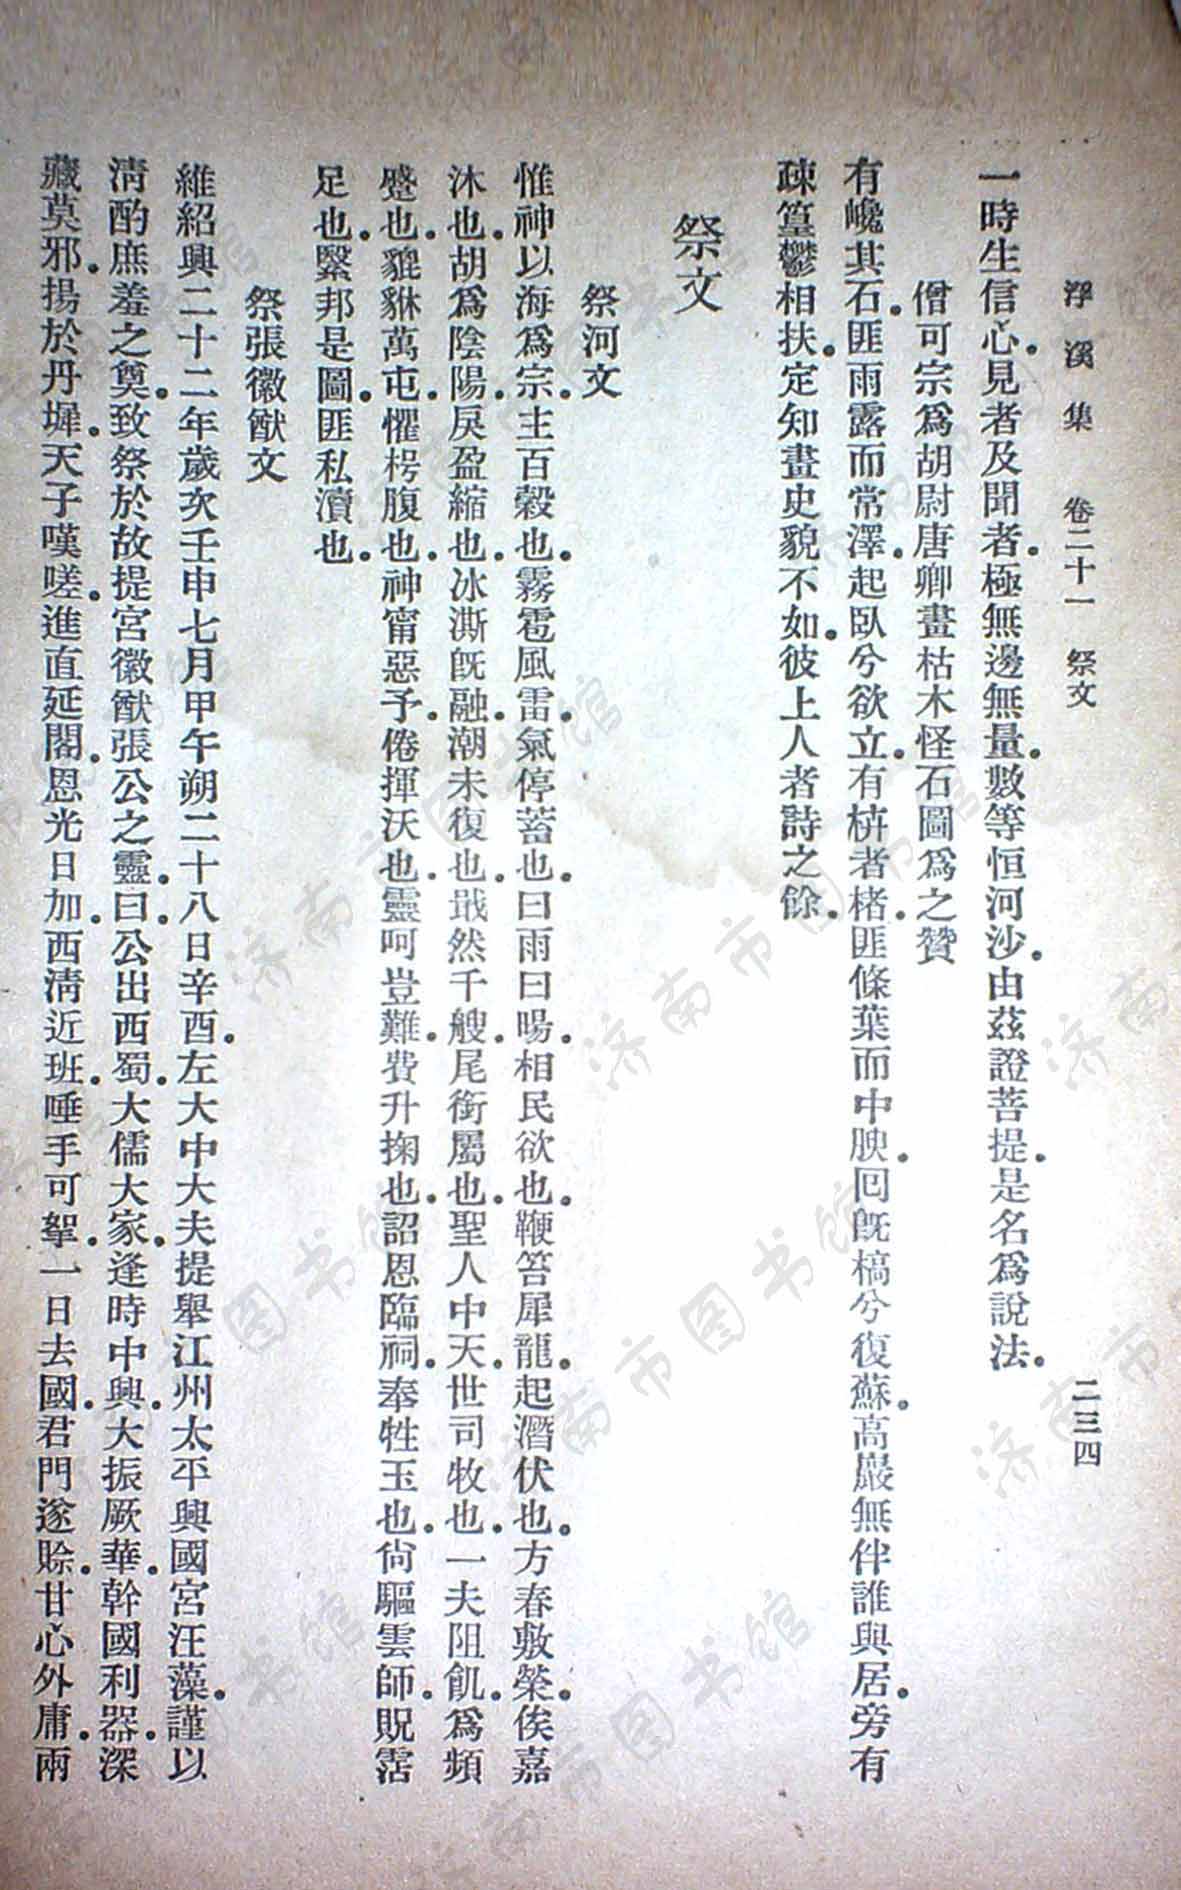 浮溪集　卷二十一　祭文　二三四
一時生信心。見者及聞者。極無邊無量。數等恒河沙。由茲證菩提。是名爲說法。
僧可宗爲胡尉唐卿畫枯木怪石圖爲之贊
有巉其石。匪雨露而常澤。起臥兮欲立。有枿者楮。匪條葉而中腴。囘旣槁兮復蘇。高巖無伴誰與居。旁有
疎篁鬱相扶。定知畫史貌不如。彼上人者詩之餘。
祭文
祭河文
惟神以海爲宗。主百穀也。霧雹風雷。氣停蓄也。曰雨曰暘。相民欲也。鞭笞犀龍。起潛伏也。方春敷榮。俟嘉
沐也。胡爲陰陽。戾盈縮也。冰澌旣融。潮未復也。戢然千艘。尾銜屬也。聖人中天。世司牧也。一夫阻飢。爲頻
蹙也。貔貅萬屯。懼枵腹也。神甯惡予。倦揮沃也。靈呵豈難。費升掬也。詔恩臨祠。奉牲玉也。尙驅雲師。貺霑
足也。繄邦是圖。匪私瀆也。
祭張徽猷文
維紹興二十二年歲次壬申七月甲午朔二十八日辛酉。左大中大夫提舉江州太平興國宮汪藻。謹以
淸酌庶羞之奠。致祭於故提宮徽猷張公之靈。曰。公出西蜀。大儒大家。逢時中興。大振厥華。幹國利器。深
藏莫邪。揚於丹墀。天子嘆嗟。進直延閣。恩光日加。西淸近班。唾手可拏。一日去國。君門遂賒。甘心外庸。兩
济南市图书馆